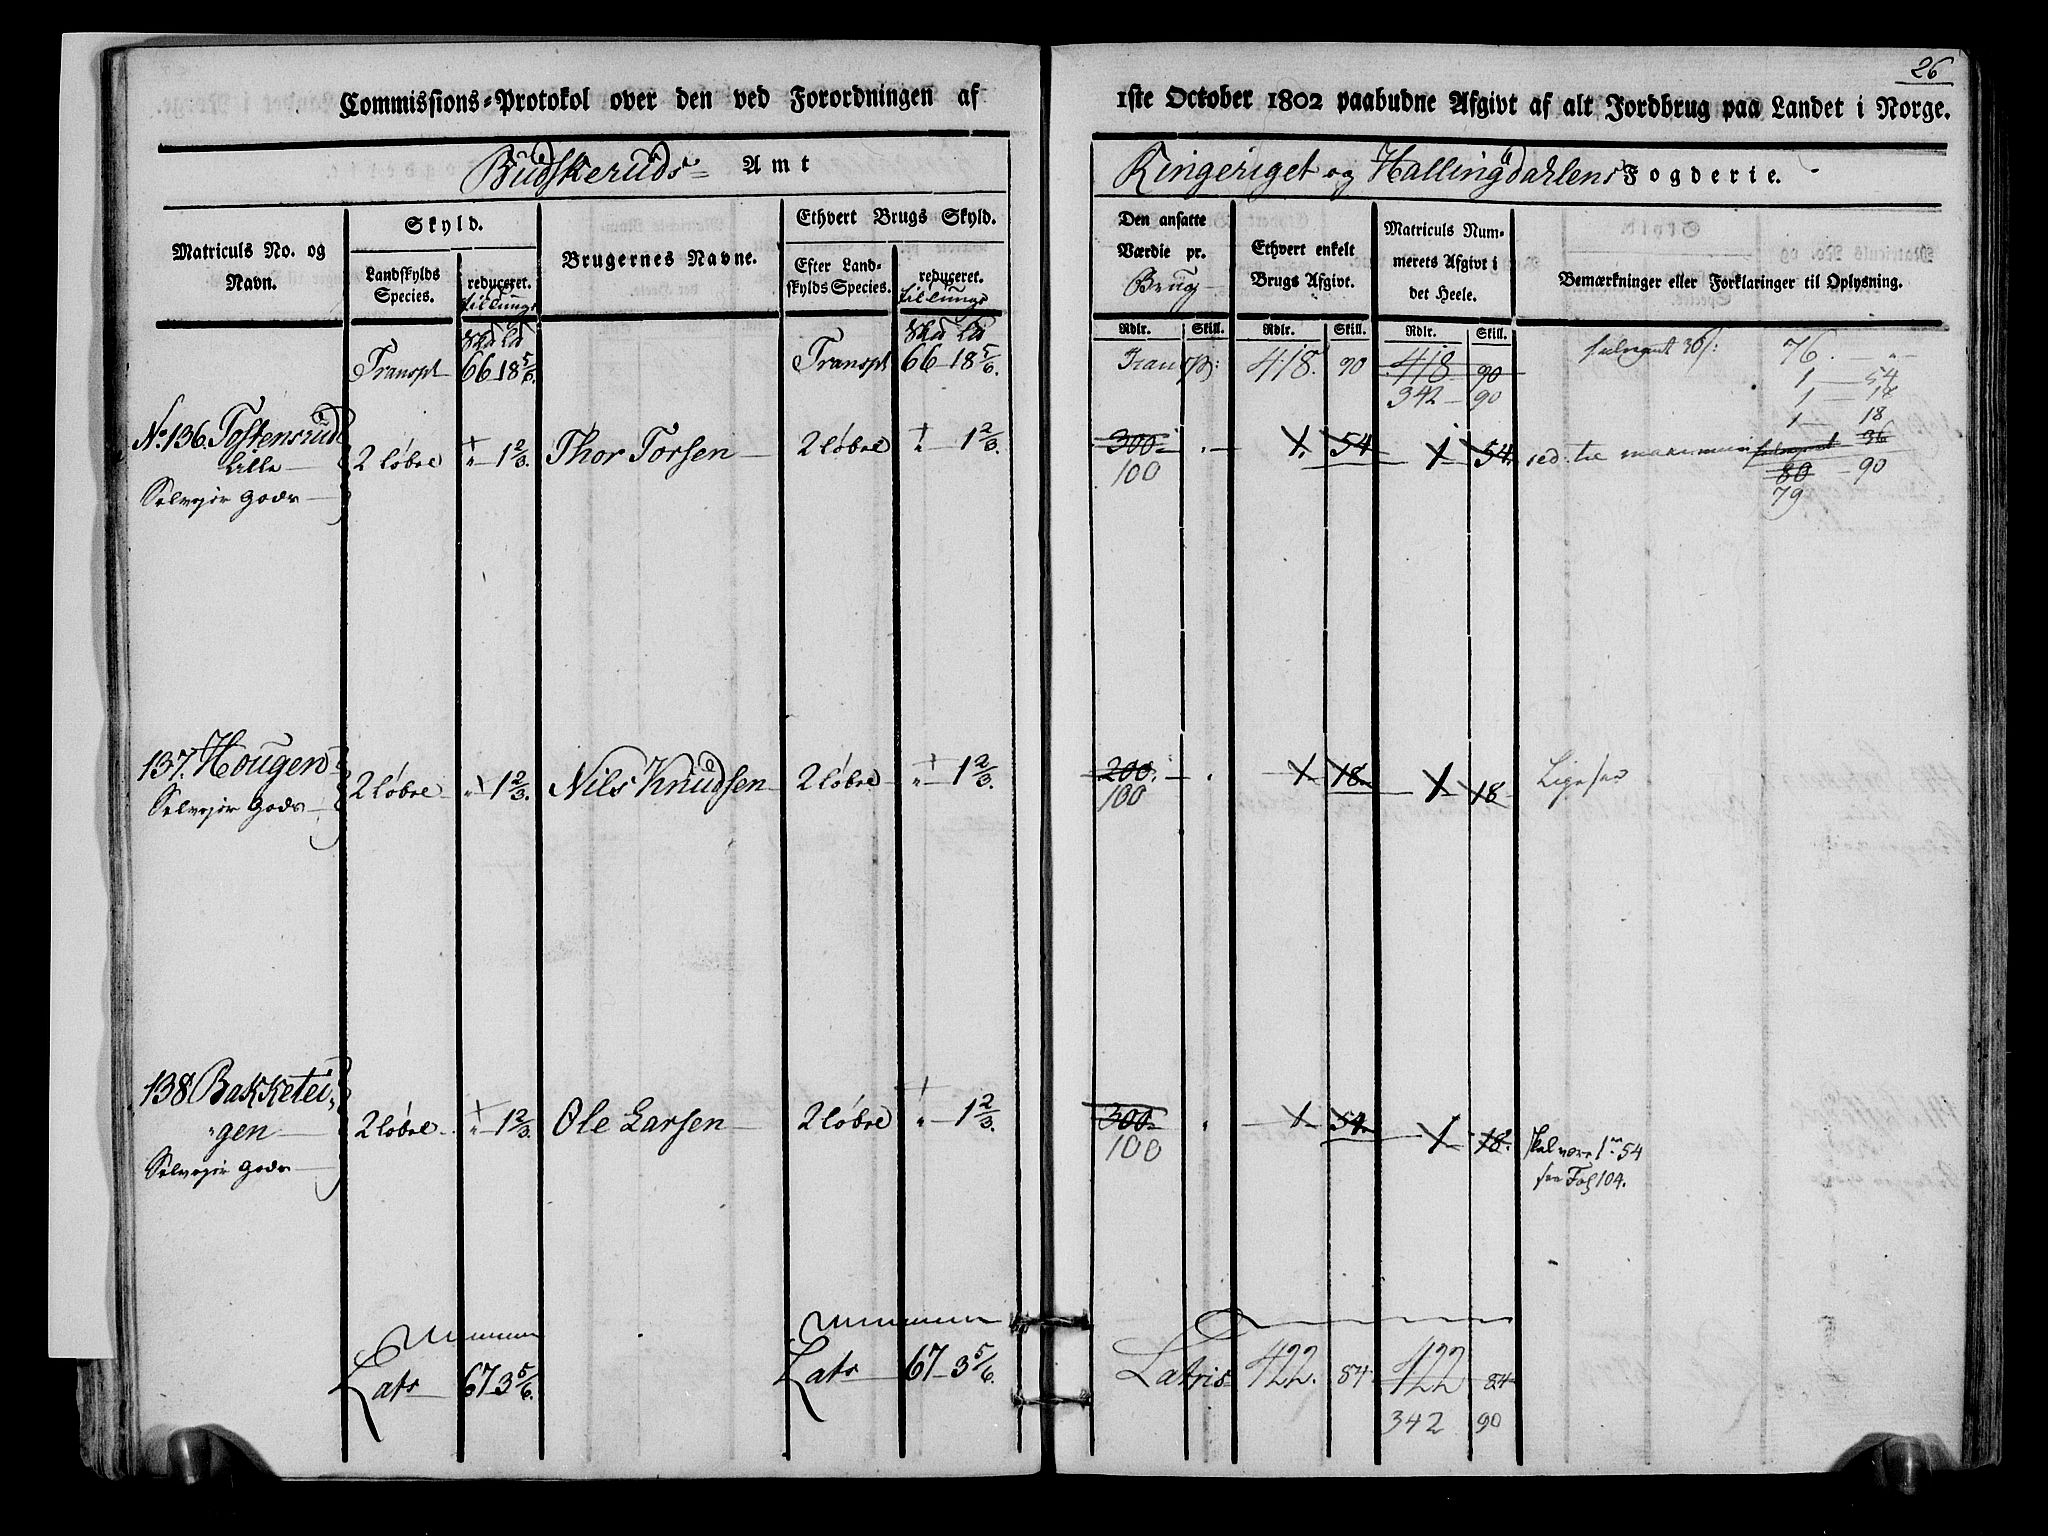 26
Commissions=Protokol over den ved Forordningen af 1ste October 1802 paabudne Afgivt af alt Jordbrug paa Landet i Norge.
Budskeruds Amt
Ringeriget og Hallingdahlens Fogderie.
Matriculs No. og Navn.
Skyld.
Landskylds Species.
reduceret.
Brugernes Navne.
Ethvert Brugs Skyld.
Efter Landskylds Species.
reduceret.
Den ansatte Værdie pr. Brug
Ethvert enkelt Brugs Afgivt.
Matriculs Nummerets Afgivt i det Heele.
Bemærkninger eller Forklaringer til Oplysning.
Rdlr. Skill. Rdlr. Skill. Rdlr. Skill.
Transpt 66 18 5/6. Transpt 66 18 5/6. Transp: 418. 90 418 90 76
342 90 1 54
1 14
1 18
No 136. Tostensrud 2 løbel " 1 2/3. Thor Torsen 2 løbel " 1 2/3. 300 " 1. 54 1 54. 36
Lille 100 80 90
Selvejer Gods 79
137. Hougen 2 løbel " 1 2/3. Nils Knudsen 2 løbel " 1 2/3. 200. " 1 18 1 18 Ligesaa
Selvejer Gods 100
138 Bakketei= 2 løbel " 1 2/3. Ole Larsen 2 løbel " 1 2/3. 300 " 1 54 1 18. skal være 1 54
"gen 100 see Fol 104.
Selvejer Gods
Lats 67 3 5/6. Lats 67 3 5/6. Latris 422. 84 422 84
342 90